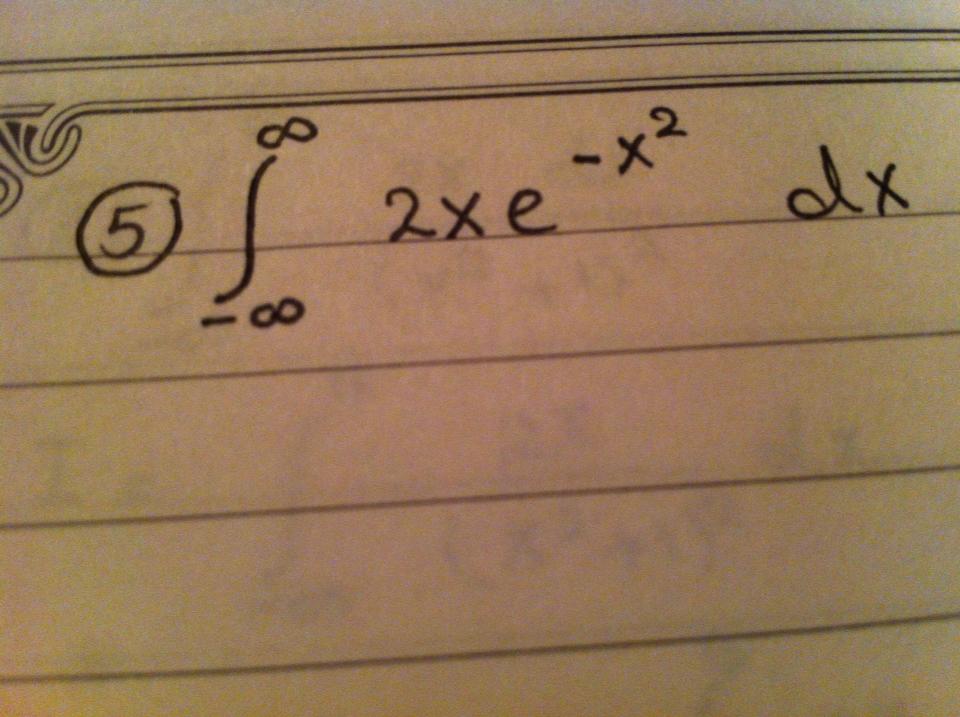 ⑤ ∫_{-∞}^{∞} 2xe^{-x²} dx